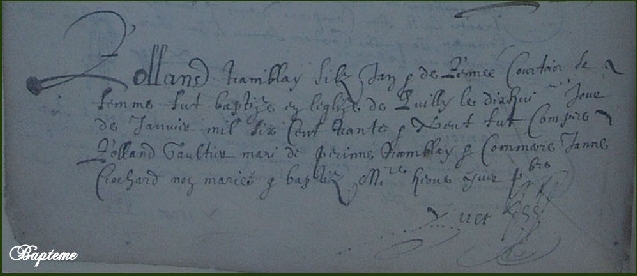 Rolland tramblay filz Jan & de Renee Courtois sa
femme fut baptize en leglize de Ruilly le dixhui jour
de Janvier mil six Cent trante & Neuf fut Compere
Rolland Gaultier mari de perinne tramblay & Commere Janne
Clochard non mariee & baptizé Mre pbre
Bapteme